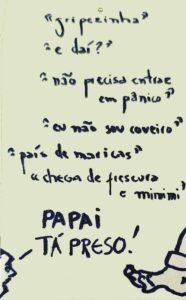 "gripezinha"
"e daí?"
"não precisa entrar
em pânico"
"eu não sou coveiro"
"país de maricas"
"chega de frescura
e mimimi"
PAPAI
TÁ PRESO!